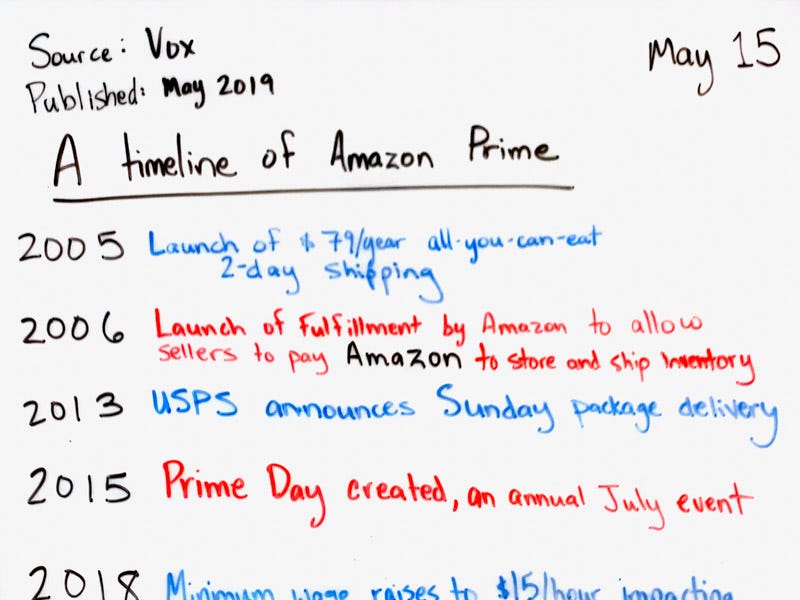 Source: Vox
May 15
Published: May 2019
A timeline of Amazon Prime
2005 Launch of $79/year all-you-can-eat
2-day shipping
2006 Launch of Fulfillment by Amazon to allow
sellers to pay Amazon to store and ship inventory
2013 USPS announces Sunday package delivery
2015 Prime Day created, an annual July event
2018 Minimum wage raises to $15/hour impacting